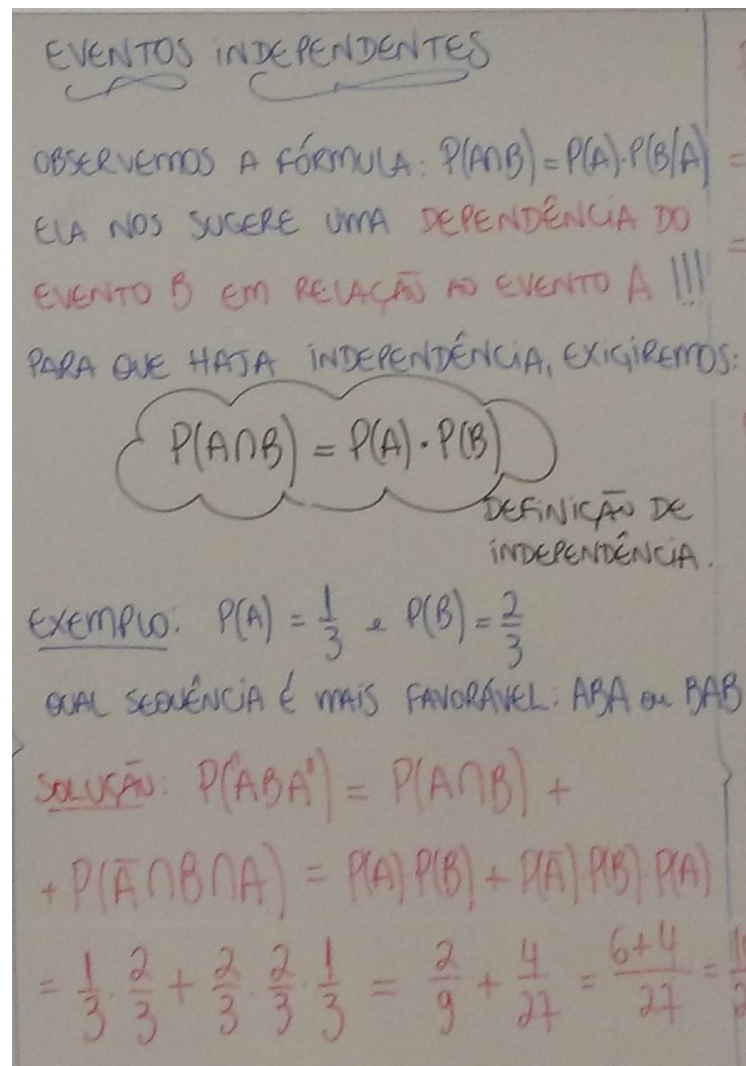 EVENTOS INDEPENDENTES
OBSERVEMOS A FÓRMULA: P(A∩B)=P(A)·P(B/A) =
ELA NOS SUGERE UMA DEPENDÊNCIA DO =
EVENTO B EM RELAÇÃO AO EVENTO A !!!
PARA QUE HAJA INDEPENDÊNCIA, EXIGIREMOS:
P(A∩B) = P(A)·P(B)
DEFINIÇÃO DE
INDEPENDÊNCIA.
EXEMPLO: P(A) = 1/3 e P(B) = 2/3
QUAL SEQUÊNCIA É MAIS FAVORÁVEL: ABA ou BAB
SOLUÇÃO: P("ABA") = P(A∩B) +
+ P(Ā∩B∩A) = P(A)·P(B) + P(Ā)·P(B)·P(A)
= 1/3 · 2/3 + 2/3 · 2/3 · 1/3 = 2/9 + 4/27 = 6+4/27 =